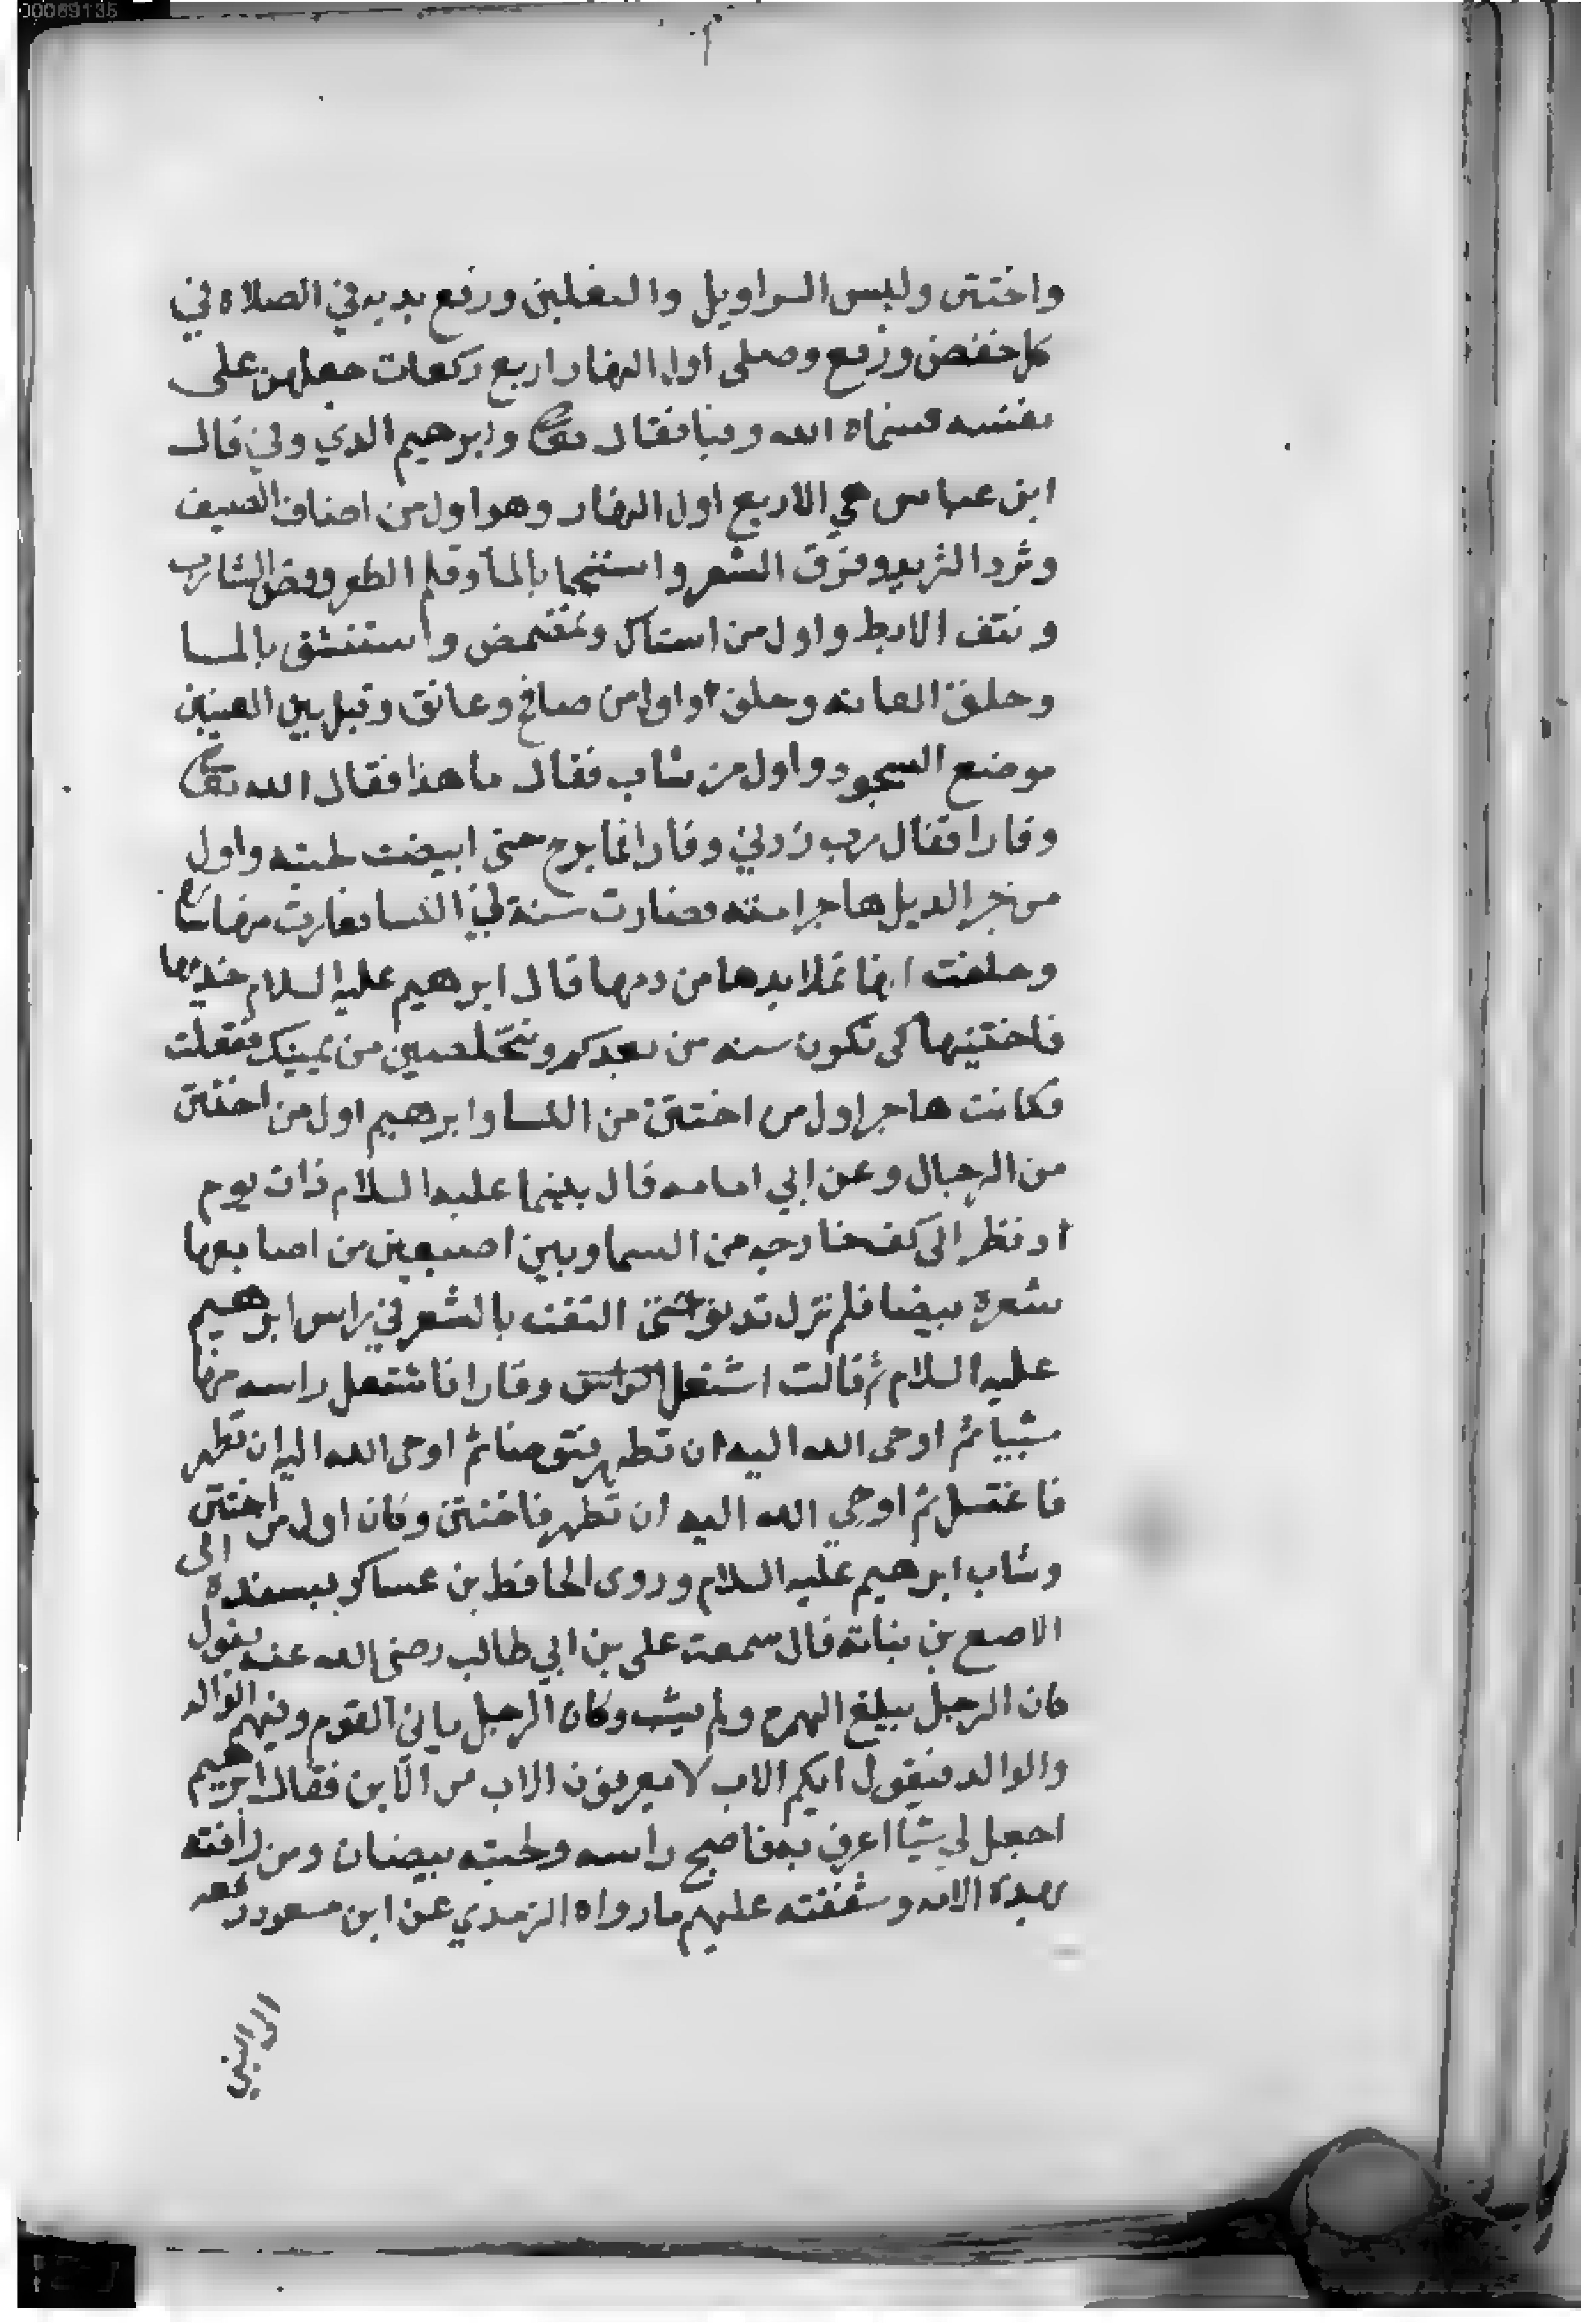 00069135
واختتن ولبس السراويل والنعلين ورفع يديه في الصلاه في
كل خفض ورفع وصلى اول النهار اربع ركعات جعلهن على
نفسه فسماه الله وفيا فقال تعا وابرهيم الدي وفي قال
ابن عباس هي الاربع اول النهار وهو اول من اضاف الضيف
وثرد الثريد وفرق الشعر واستنجا بالمآ وقلم الظفر وقص الشارب
ونتف الابط واول من استاك وتمضمض واستنشق بالما
وحلق العانه واول من صافح وعانق وقبل بين العينين
موضع السجود واول من شاب فقال ما هذا فقال الله تعا
وقارا فقال رب زدني وقارا فما برح حتى ابيضت لحيته واول
من جر الديل هاجر امته فصارت سنة في النسا فغارت منها ساره
وحلفت انها تملا يدها من دمها قال ابرهيم عليه السلام خذيها
فاختنيها كي تكون سنه من بعدكم وتتخلصين من يمينك ففعلت
فكانت هاجر اول من اختتن من النسا وابرهيم اول من اختتن
من الرجال وعن ابي امامه قال بينما عليه السلام ذات يوم
اد نظر الى كف خارجه من السما وبين اصبعين من اصابعها
شعرة بيضا فلم تزل تدنو حتى التقت بالشعر في راس ابرهيم
عليه السلام ثم قالت اشتعل وقارا فاشتعل راسه منها
شيبا ثم اوحى الله اليه ان تطهر فتوضا ثم اوحى الله اليه ان تطهر
فاغتسل ثم اوحي الله اليه ان تطهر فاختتن وكان اول من اختتن
وشاب ابرهيم عليه السلام وروى الحافظ بن عساكر بسنده الى
الاصبع بن نباته قال سمعت على بن ابي طالب رضى الله عنه يقول
كان الرجل يبلغ الهرم ولم يشب وكان الرجل ياتي القوم وفيهم الوالد
والوالد فيقول ايكم الاب لا يعرفون الاب من الابن فقال ابرهيم
اجعل لي شيا اعرف به فاصبح راسه ولحيته بيضان ومن رافته
بهده الامه وشفقته عليهم ما رواه الترمدي عن ابن مسعود
الى النبي